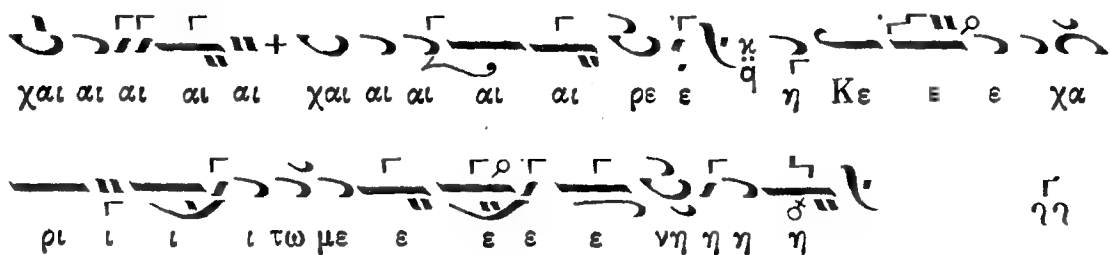 χαι αι αι αι αι χαι αι αι αι αι ρε ε η Κε ε ε χα
ρι ι ι ι τω με ε ε ε ε νη η η η